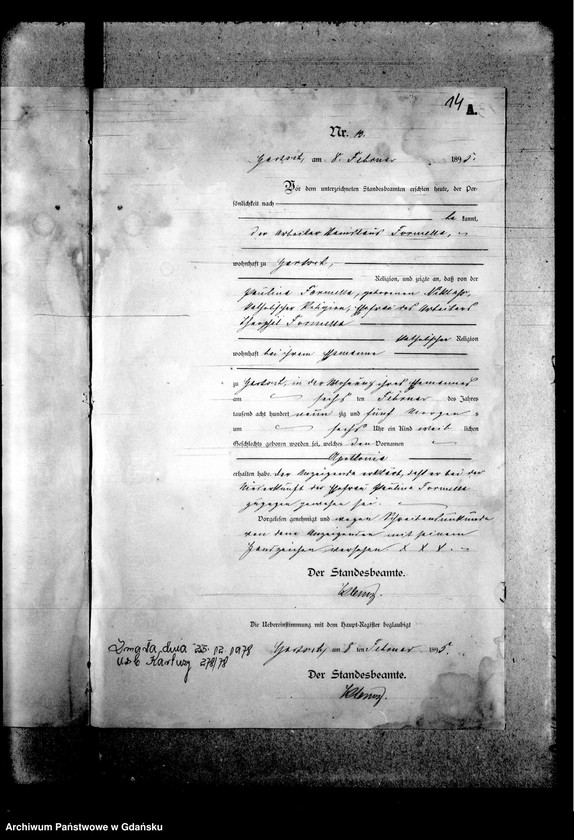 14 A.
Nr.
am 8. Februar 1895.
Vor dem unterzeichneten Standesbeamten erschien heute, der Per-
sönlichkeit nach
be kannt,
der Arbeiter Formella,
wohnhaft zu
Religion, und zeigte an, daß von der
Pauline Formella, geborenen
katholischer Religion, Ehefrau des Arbeiters
Formella
katholischer Religion
wohnhaft bei ihrem Ehemanne
zu in der Wohnung ihres Ehemannes
am sechs ten Februar des Jahres
tausend acht hundert neun zig und fünf Morgens
um sechs Uhr ein Kind weib lichen
Geschlechts geboren worden sei, welches den Vornamen
Apollonia
erhalten habe. Der Anzeigende erklärt, daß er bei der
Niederkunft der Ehefrau Pauline Formella
zugegen gewesen sei.
Vorgelesen, genehmigt und wegen Schreibensunkunde
von dem Anzeigenden mit seinem
Handzeichen versehen x x x.
Der Standesbeamte.
Die Uebereinstimmung mit dem Haupt-Register beglaubigt
am 8 ten Februar 1895.
Der Standesbeamte.
Zmarła dnia 23.12.1978
USC Kartuzy 278/78
Archiwum Państwowe w Gdańsku